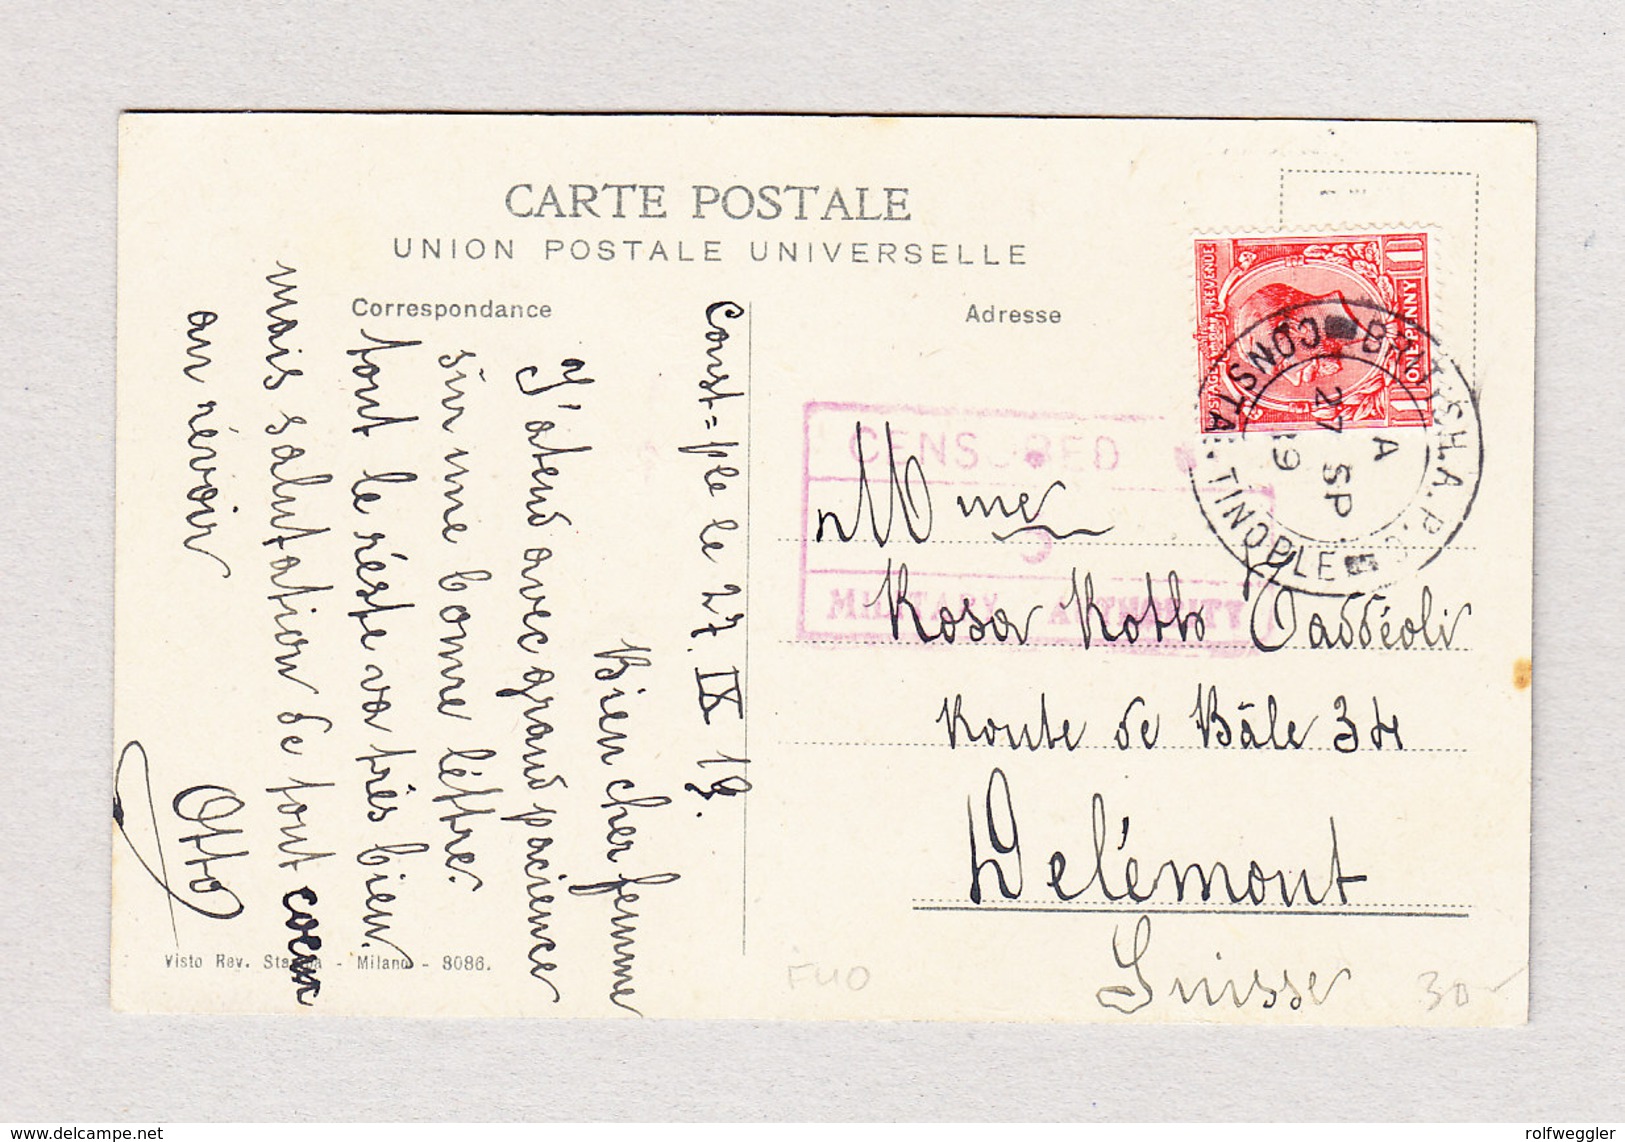 CARTE POSTALE
UNION POSTALE UNIVERSELLE
Correspondance
Adresse
Const=ple le 27. IX 19.
Bien cher femme
J'atend avec grand pacience
sur une bonne léttre.
tout le réste va trés bien.
mais salutation de tout coeur
au révoir
Otto
POSTAGE REVENUE
ONE PENNY
BRITISH A.P.O.
CONSTANTINOPLE
A
27 SP.
19
CENSORED
MILITARY AUTHORITY
Mme
Rosa Roth Taddéoli
Route de Bâle 34
Delémont
Suisse
Visto Rev. Stampa - Milano - 8086.
F40
30-
delcampe.net
rolfweggler